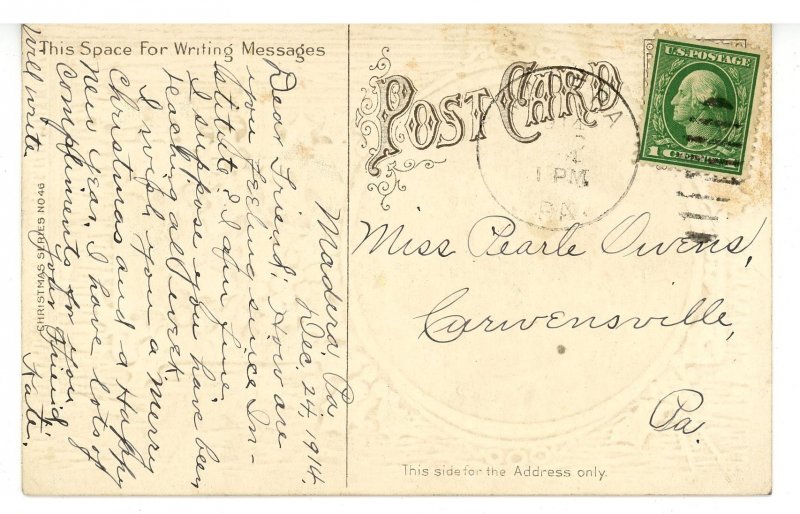 This Space For Writing Messages
POST CARD
U.S. POSTAGE
1 PM
PA.
Madera, Pa
Dec. 24, 1914.
Dear Friend; How are
you feeling since In-
stitute? I am fine.
I suppose you have been
teaching all week
I wish you a Merry
Christmas and a Happy
New Year. I have lots of
Compliments for you
Your friend
Kate.
will write
CHRISTMAS SERIES NO 46
Miss Pearle Owens,
Curwensville,
Pa.
This side for the Address only.